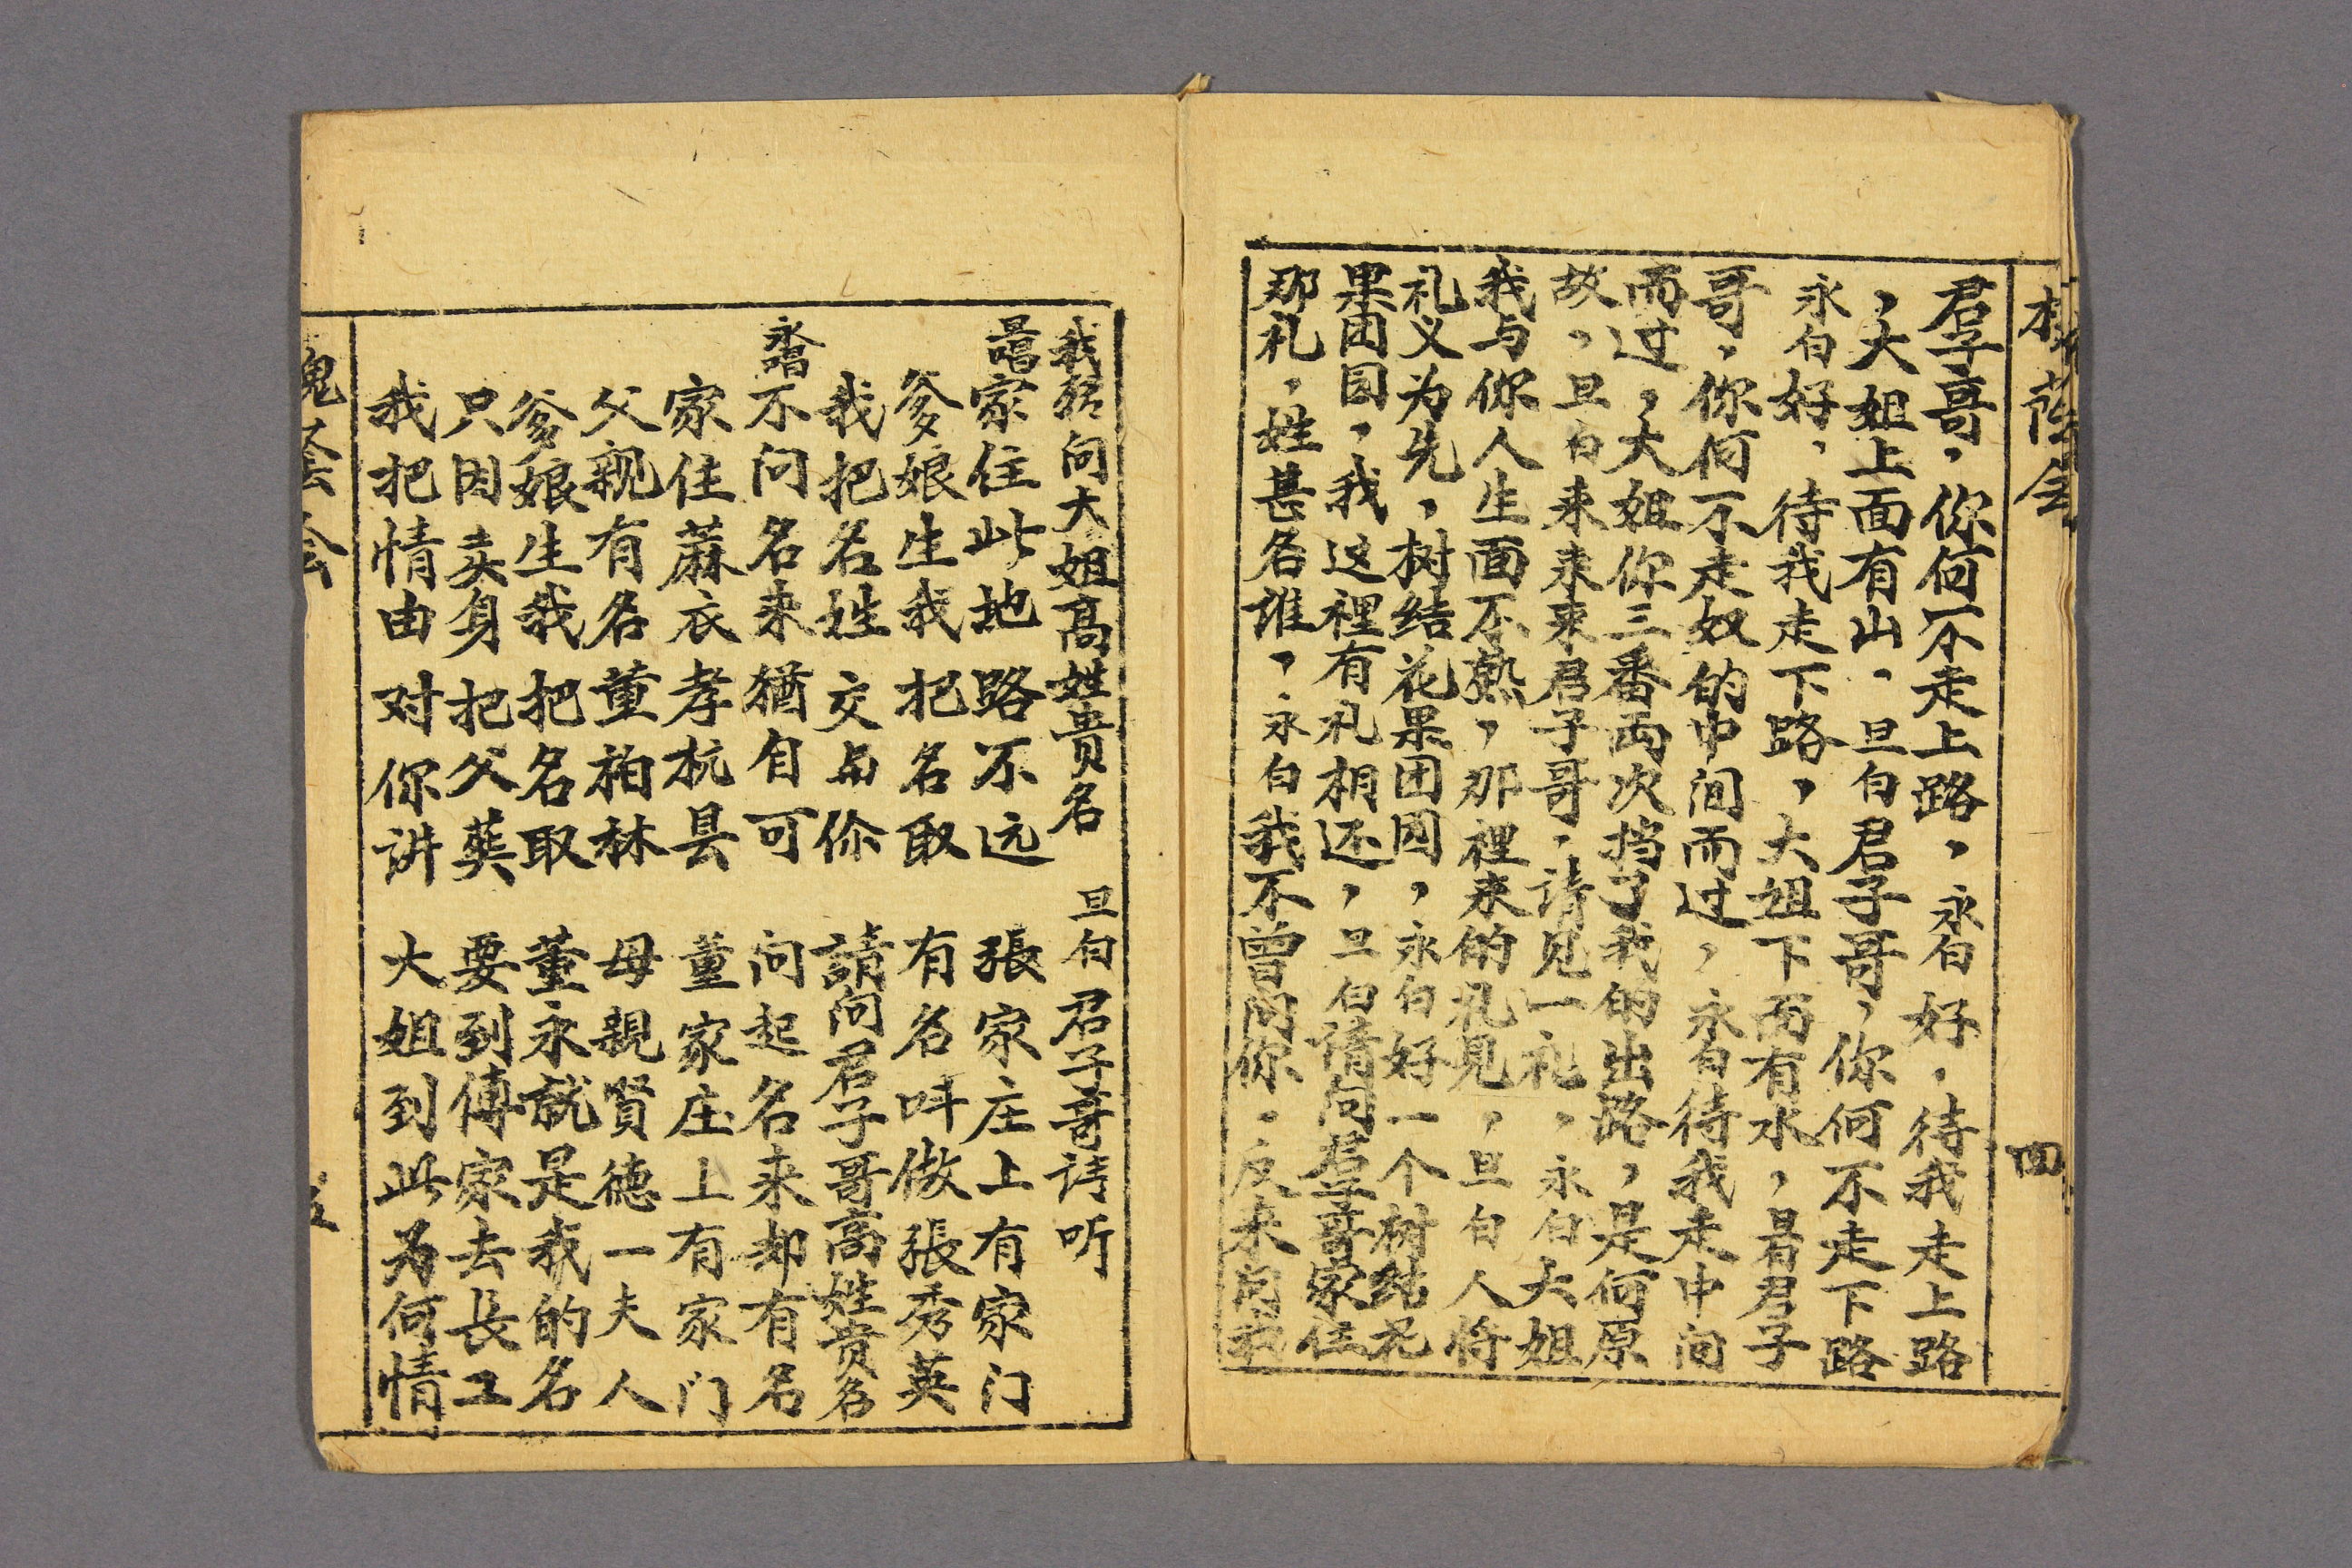 槐荫会 四
君子哥，你何不走上路，永白好，待我走上路
，大姐上面有山、旦白君子哥，你何不走下路
永白好，待我走下路，大姐下面有水，旦白君子
哥，你何不走奴的中间而过，永白待我走中间
而过，大姐你三番両次挡了我的出路，是何原
故，旦白来来来君子哥，请见一礼，永白大姐
我与你人生面不熟，那裡来的礼見，旦白人将
礼义为先，树结花果团园，永白好一个树结花
果团园，我这裡有礼相还，旦白請问君子哥家住
那礼，姓甚名谁，永白我不曾问你，反来问我
我径问大姐高姓贵名 旦白 君子哥请听
旦唱家住此地路不远 張家庄上有家门
爹娘生我把名取 有名呌做張秀英
我把名姓交与你 請问君子哥高姓贵名
永唱不问名来猶自可 问起名来却有名
家住蔴衣孝杭县 董家庄上有家门
父親有名董柏林 母親賢德一夫人
爹娘生我把名取 董永就是我的名
只因卖身把父葬 要到傅家去長工
我把情由对你讲 大姐到此为何情
槐荅会